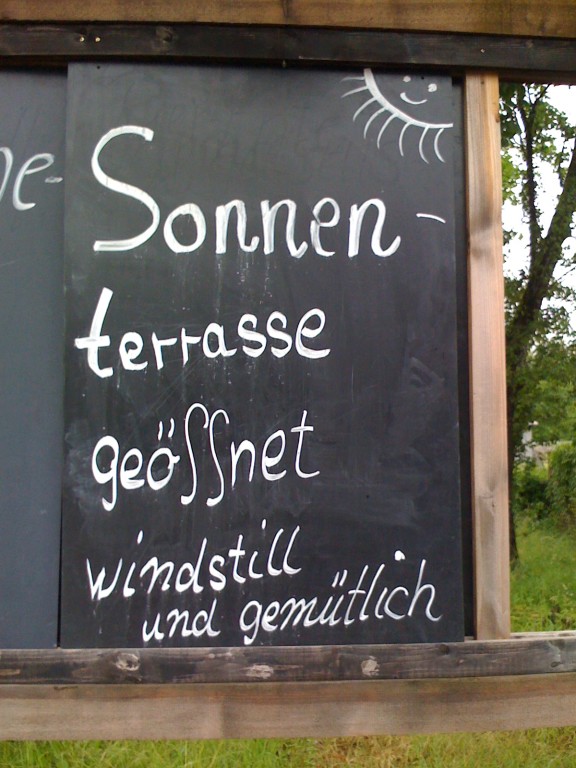 Sonnen-
terrasse
geöffnet
windstill
und gemütlich